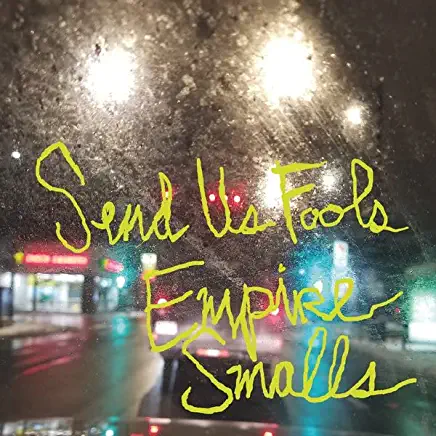 Send Us Fools
Empire
Smalls